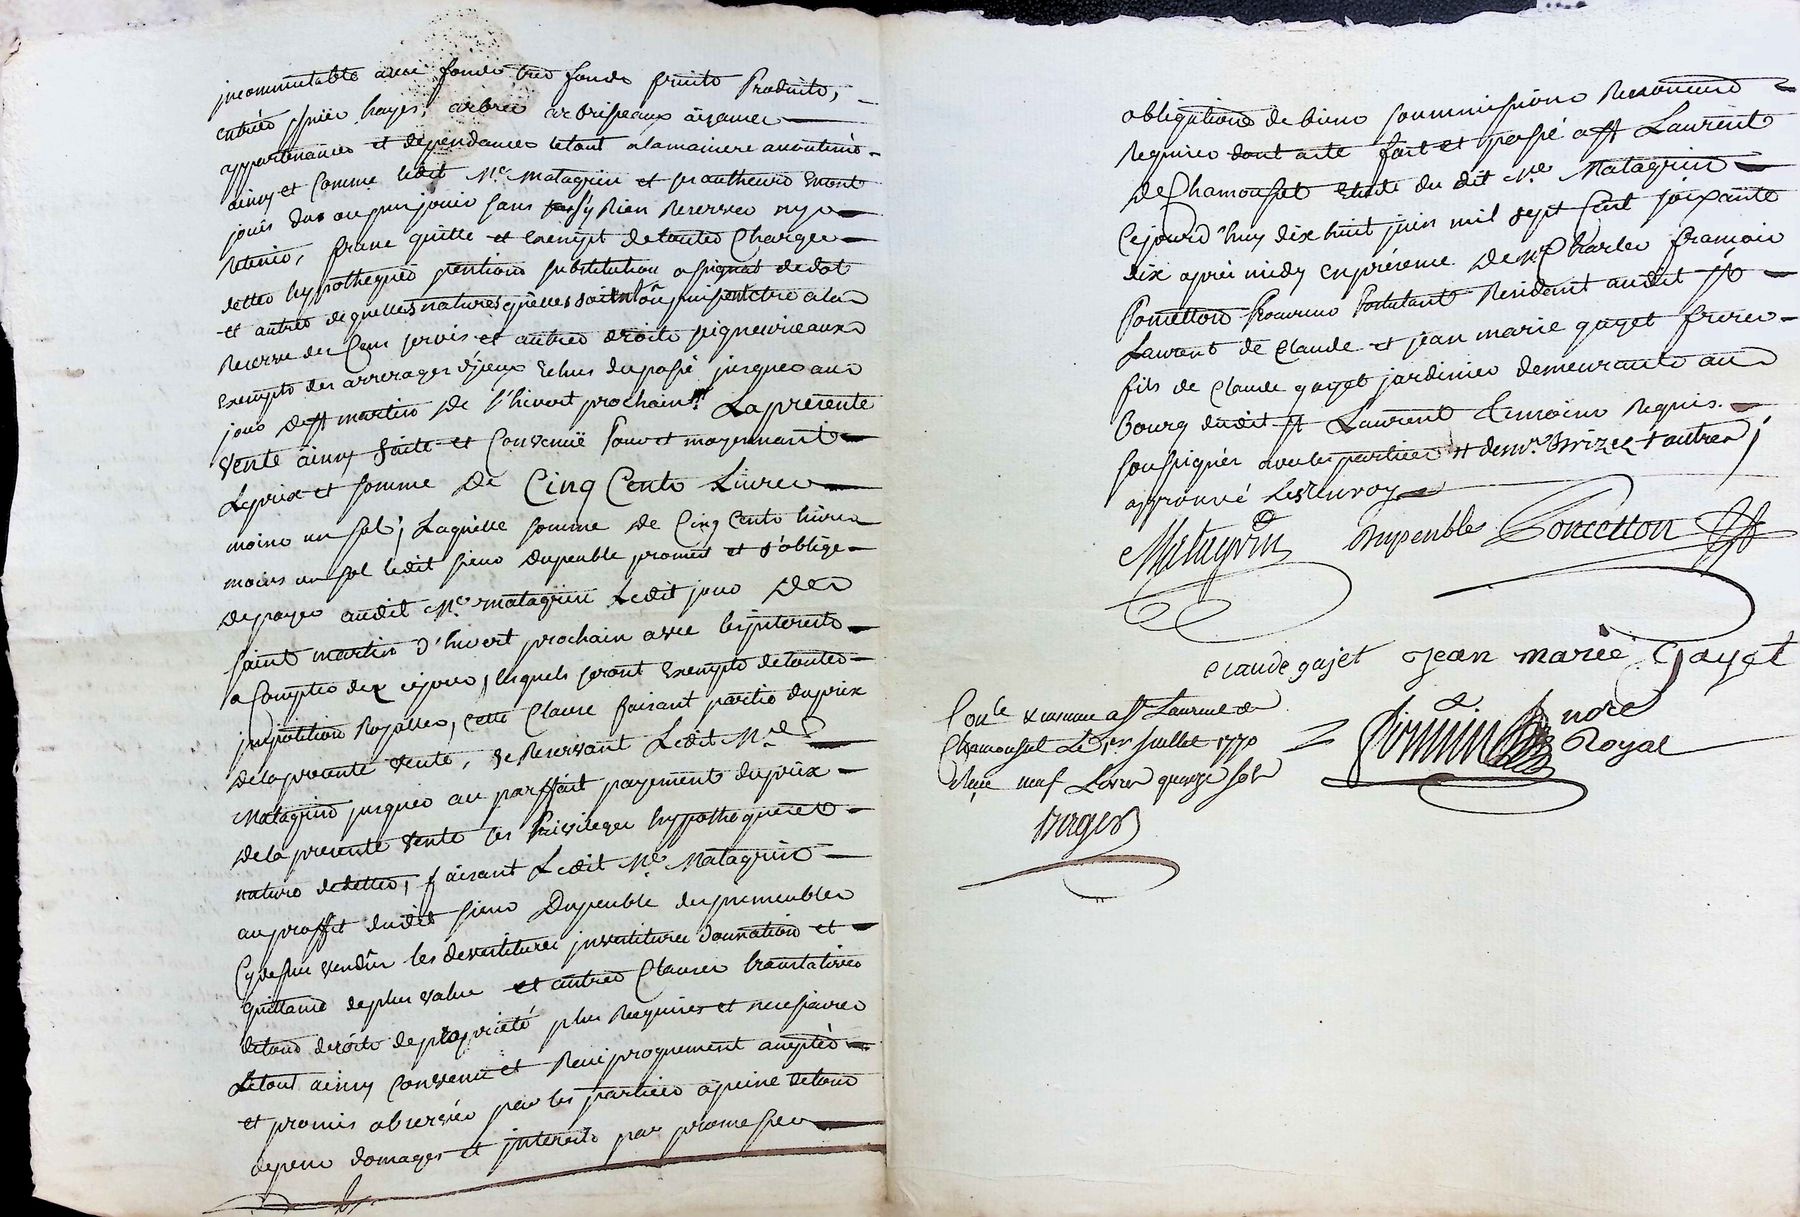 incommutable avec fonds tres fonds fruits Produits,
entrées issües hayes, arbres arbrisseaux aizances
appartenances et dépendances le tout a la maniere accoutumé
ainsy et Comme ledit Me Matagrin et ses autheurs en ont
jouis dus ou pus jouir sans sy Rien Reserver ny
Retenir, franc quitte et exempt de toutes Charges
dettes hypotheques pentions substitution assignat de dot
et autres de quelles natures qu'elles soint ou puissent etre a la
Reserve des Cens servis et autres droits seigneuriaux
exempts des arrerages d'yceux echus du passé jusques au
jour de st martin de l'hivert prochain La presente
vente ainsy faite et Convenüe Pour et moyennant
Le prix et somme de Cinq Cents Livres
moins un sol, Laquelle somme de Cinq Cents livres
moins un sol ledit sieur Dupeuble promet et s'oblige
de payer audit Me matagrin Ledit jour de
saint martin d'hivert prochain avec les interests
a Compter de ce jour, lesquels seront exempts de toutes
imposition Royalles, cette Clause faisant partie du prix
de la presente vente, se Reservant Ledit Me
Matagrin jusques au parffait payement du prix
de la presente vente les Privileges hypotheques et
nature de dettes, faisant Ledit Me Matagrin
au proffit dudit sieur Dupeuble des immeubles
Cy dessus vendûs les devestitures investitures donnation et
quittance de plus value et autres Clauses translatives
de tous droits de proprieté plus Requises et necessaires
Le tout ainsy Convenu et Reciproquement accepté
et promis observer par les parties a peine de tous
depens domages et interests par promesses
obligations de biens soummissions Renoncions
Requises dont acte fait et passé a st Laurent
de Chamousset etude du dit Me Matagrin
Cejourd'huy dix huit juin mil sept Cent soixante
dix après midy en présence de Mr Charles francois
Poncetton Procureur Postulant Resident audit st
Laurent de Claude et jean marie gayet freres
fils de Claude gayet jardinier demeurants au
Bourg dudit st Laurent temoins Requis
soussignés avec les parties
approuvé Les Renvoy
Matagrin Dupeuble Poncetton
claude gajet Jean marie Gayet
Conle a st Laurent de
Chamousset Le 1er Juillet 1770
Reçu neuf Livres quinze sols
Berger
nore
Royal